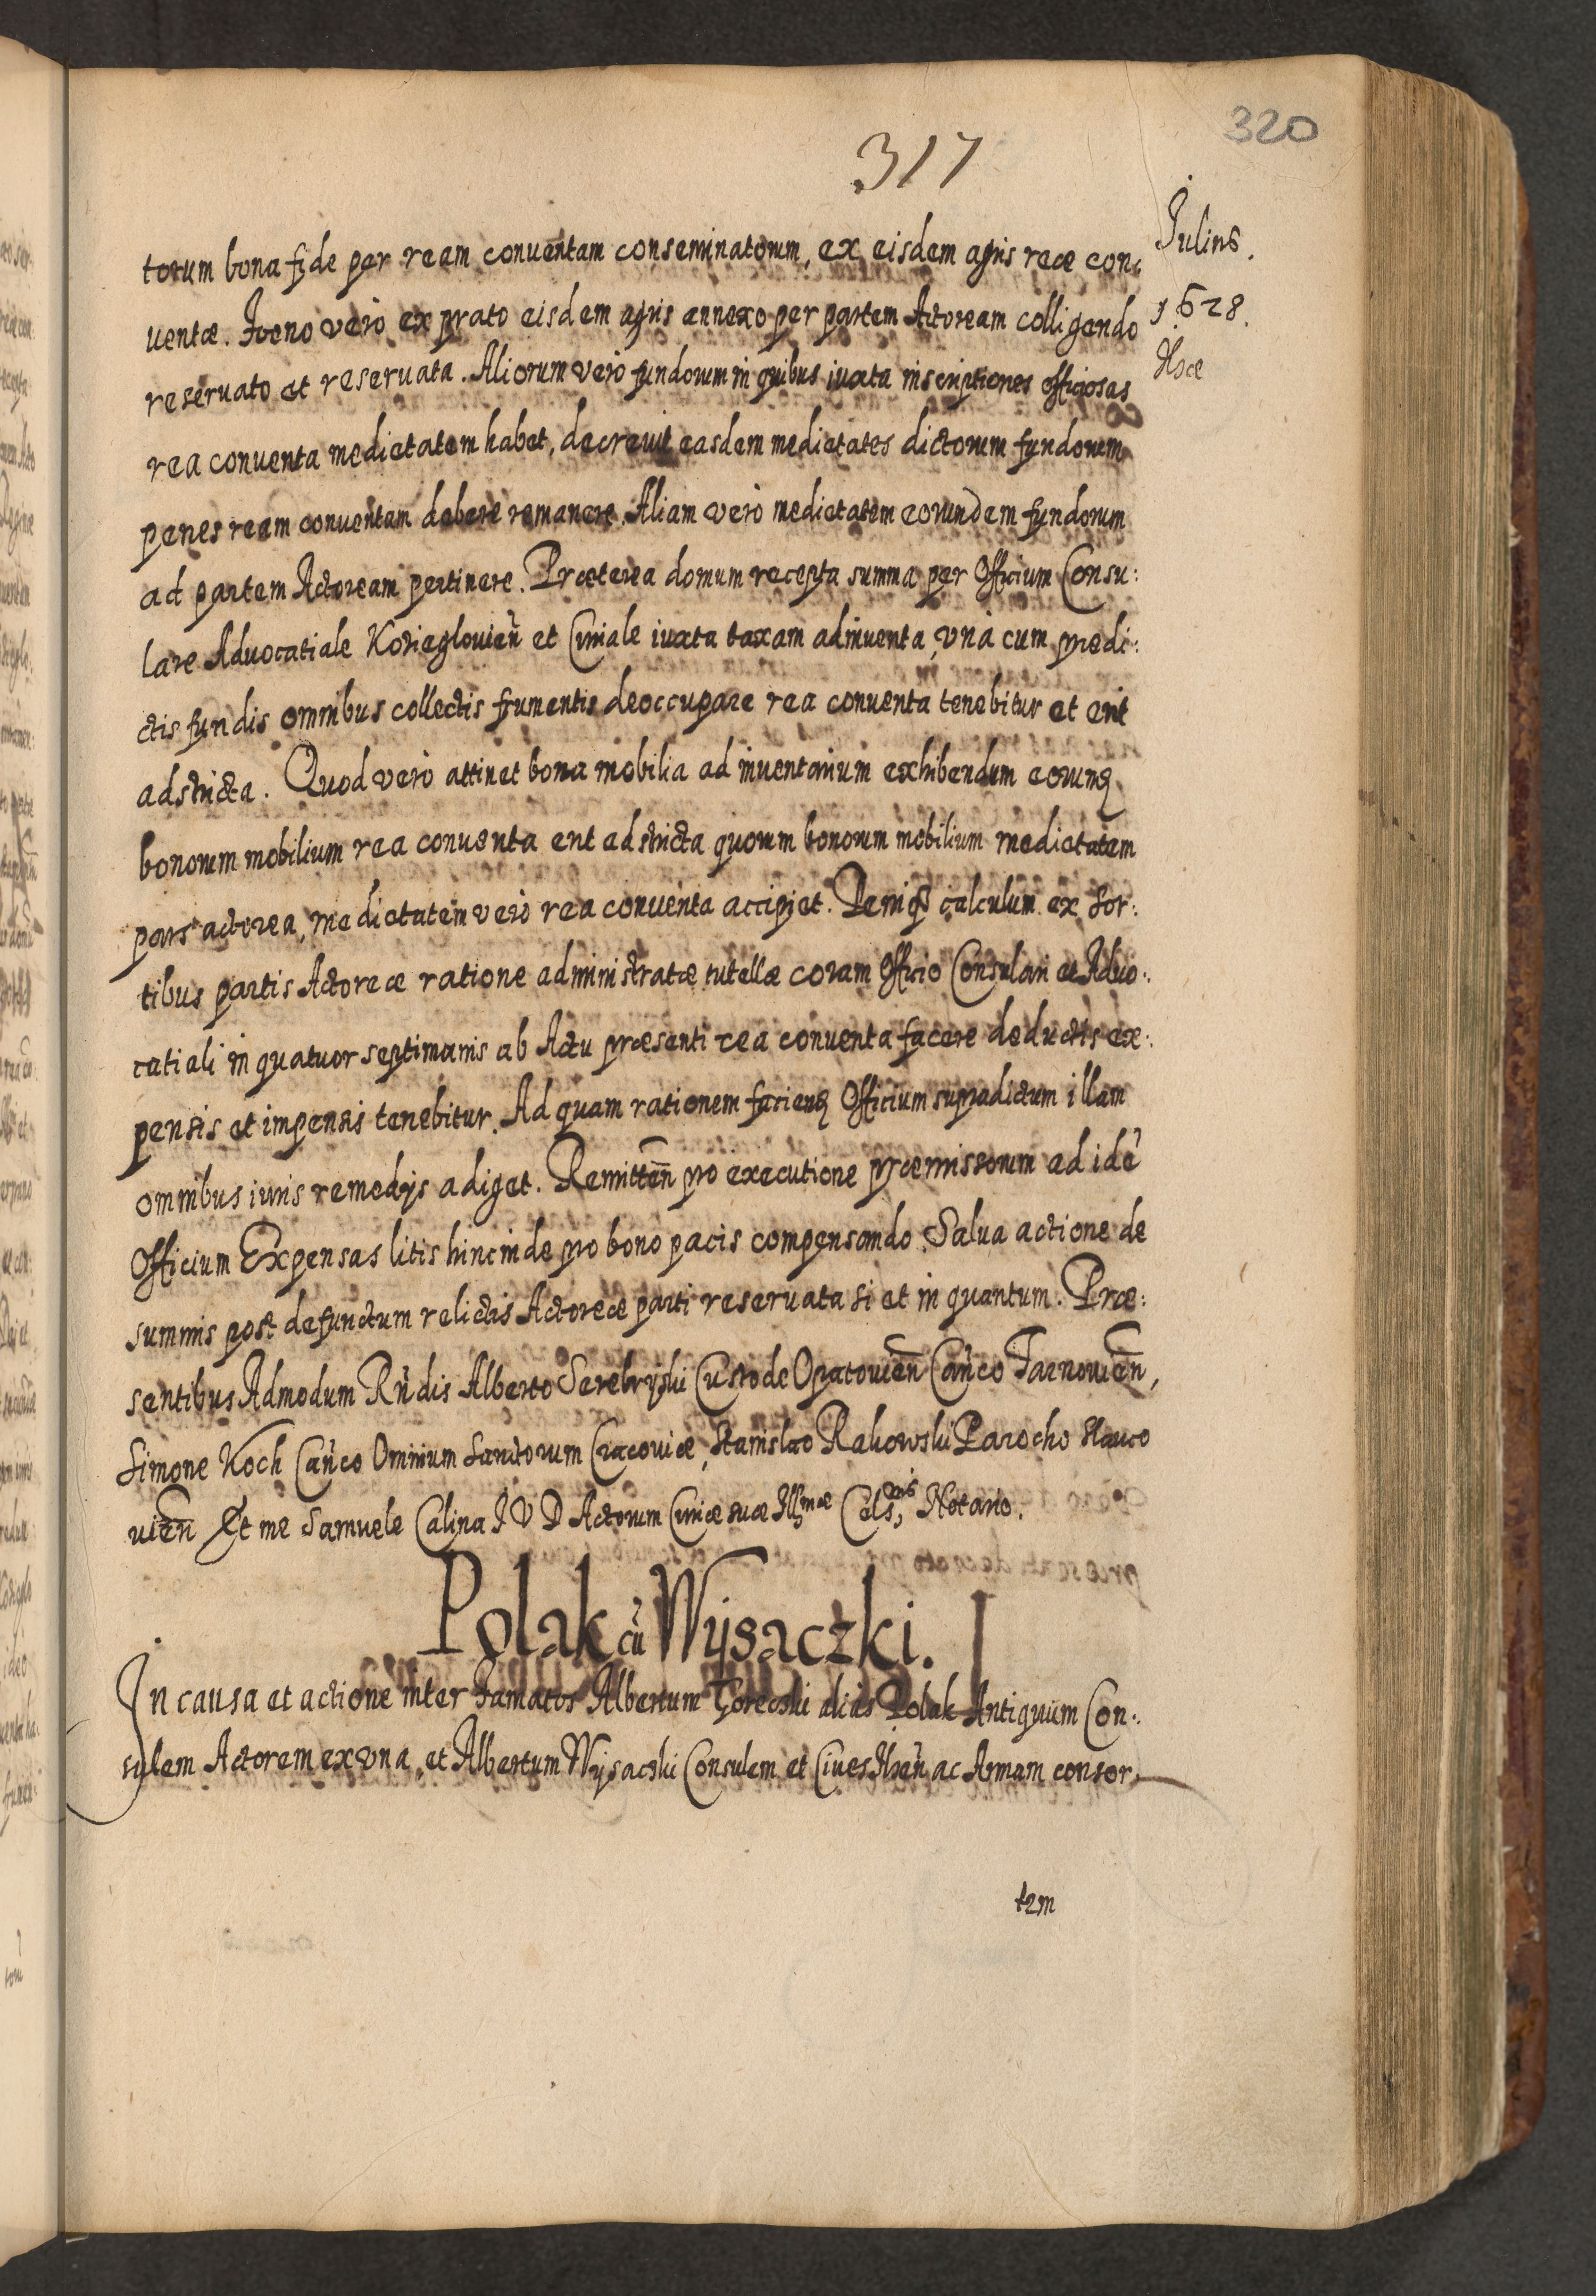 320
317
Julius.
1628.
Ilzæ
torum bona fide per ream conuentam conseminatorum, ex eisdem agris reæ con:
uentæ. Foeno verò ex prato eisdem agris annexo per partem Actoream colligendo
reseruato et reseruata. Aliorum verò fundorum in quibus iuxta inscriptiones officiosas
rea conuenta medietatem habet, decreuit easdem medietates dictorum fundorum
penes ream conuentam debere remanere. Aliam verò medietatem eorundem fundorum
ad partem Actoream pertinere. Præterea domum recepta summa per Officium Consu:
lare Advocatiale Kozieglouien̄ et Curiale iuxta taxam adinuenta, vnà cum prædi:
ctis fundis omnibus collectis frumentis deoccupare rea conuenta tenebitur et erit
adstricta. Quod verò attinet bona mobilia ad inuentarium exhibendum eorumq
bonorum mobilium rea conuenta erit adstricta quorum bonorum mobilium medietatem
pars actorea, medietatem verò rea conuenta accipiet. Deniq calculum ex sor:
tibus partis Actoreæ ratione administratæ tutellæ coram Officio Consulari et Aduo:
catiali in quatuor septimanis ab Actu præsenti rea conuenta facere deductis ex:
pensis et impensis tenebitur. Ad quam rationem faciend Officium supradictum illam
omnibus iuris remedijs adiget. Remitten̄ pro executione præmissorum ad idē
Officium Expensas litis hinc inde pro bono pacis compensando. Salua actione de
summis post defunctum relictis Actoreæ parti reseruata si et in quantum. Præ:
sentibus Admodum Rn̄dis Alberto Serebryski Custode Opatouien̄ Can̄co Tarnouien̄,
Simone Koch Can̄co Omnium Sanctorum Cracouiæ, Stanislao Rakowski Parocho Slauco
uien̄ Et me Samuele Calina I V D Actorum Curiæ suæ Ill<sup>mæ</sup> Cels<sup>nis</sup> Notario.
Polak cū Wysaczki.
In causa et actione inter Famatos Albertum Gorecski aliàs Polak Antiquum Con:
sulem Actorem ex vna, et Albertum Wysaczki Consulem et Ciues Ilzen̄ ac Annam consor:
tem